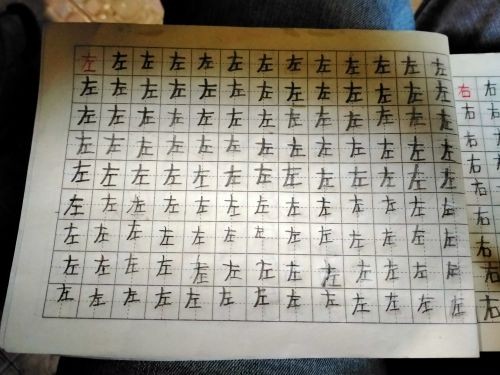 左左左左左左左左左左左左左
左左左左左左左左左左左左左
左左左左左左左左左左左左左
左左左左左左左左左左左左左
左左左左左左左左左左左左左
左左左左左左左左左左左左左
左左左左左左左左左左左左左
左左左左左左左左左左左左左
左左左左左左左左左左左左左
右右
右右
右右
右右
右
右
右
右
右